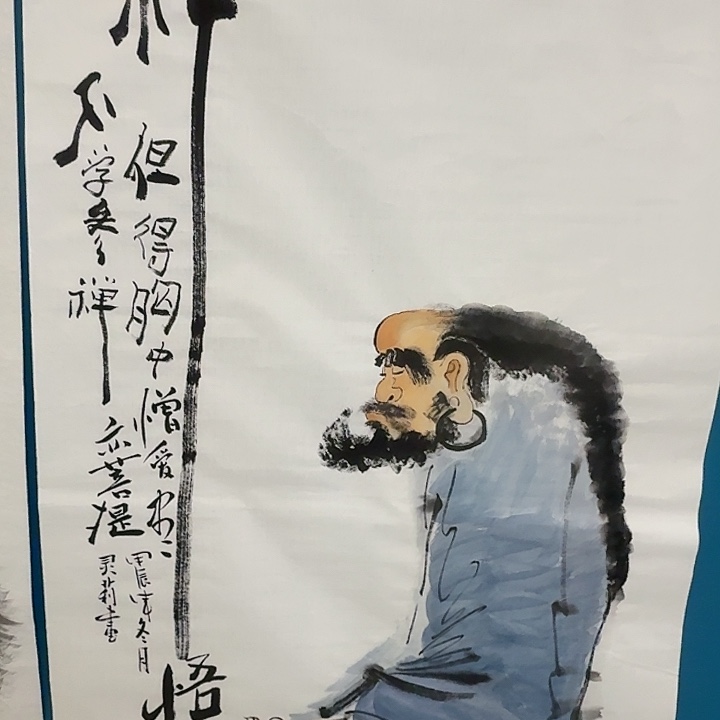 悟
但得胸中憎爱尽
不学参禅亦菩提
甲辰年冬月
灵莉画